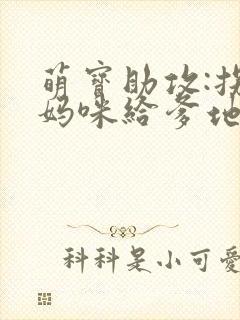 萌寶助攻:拐
媽咪給爹地
科科是小可愛